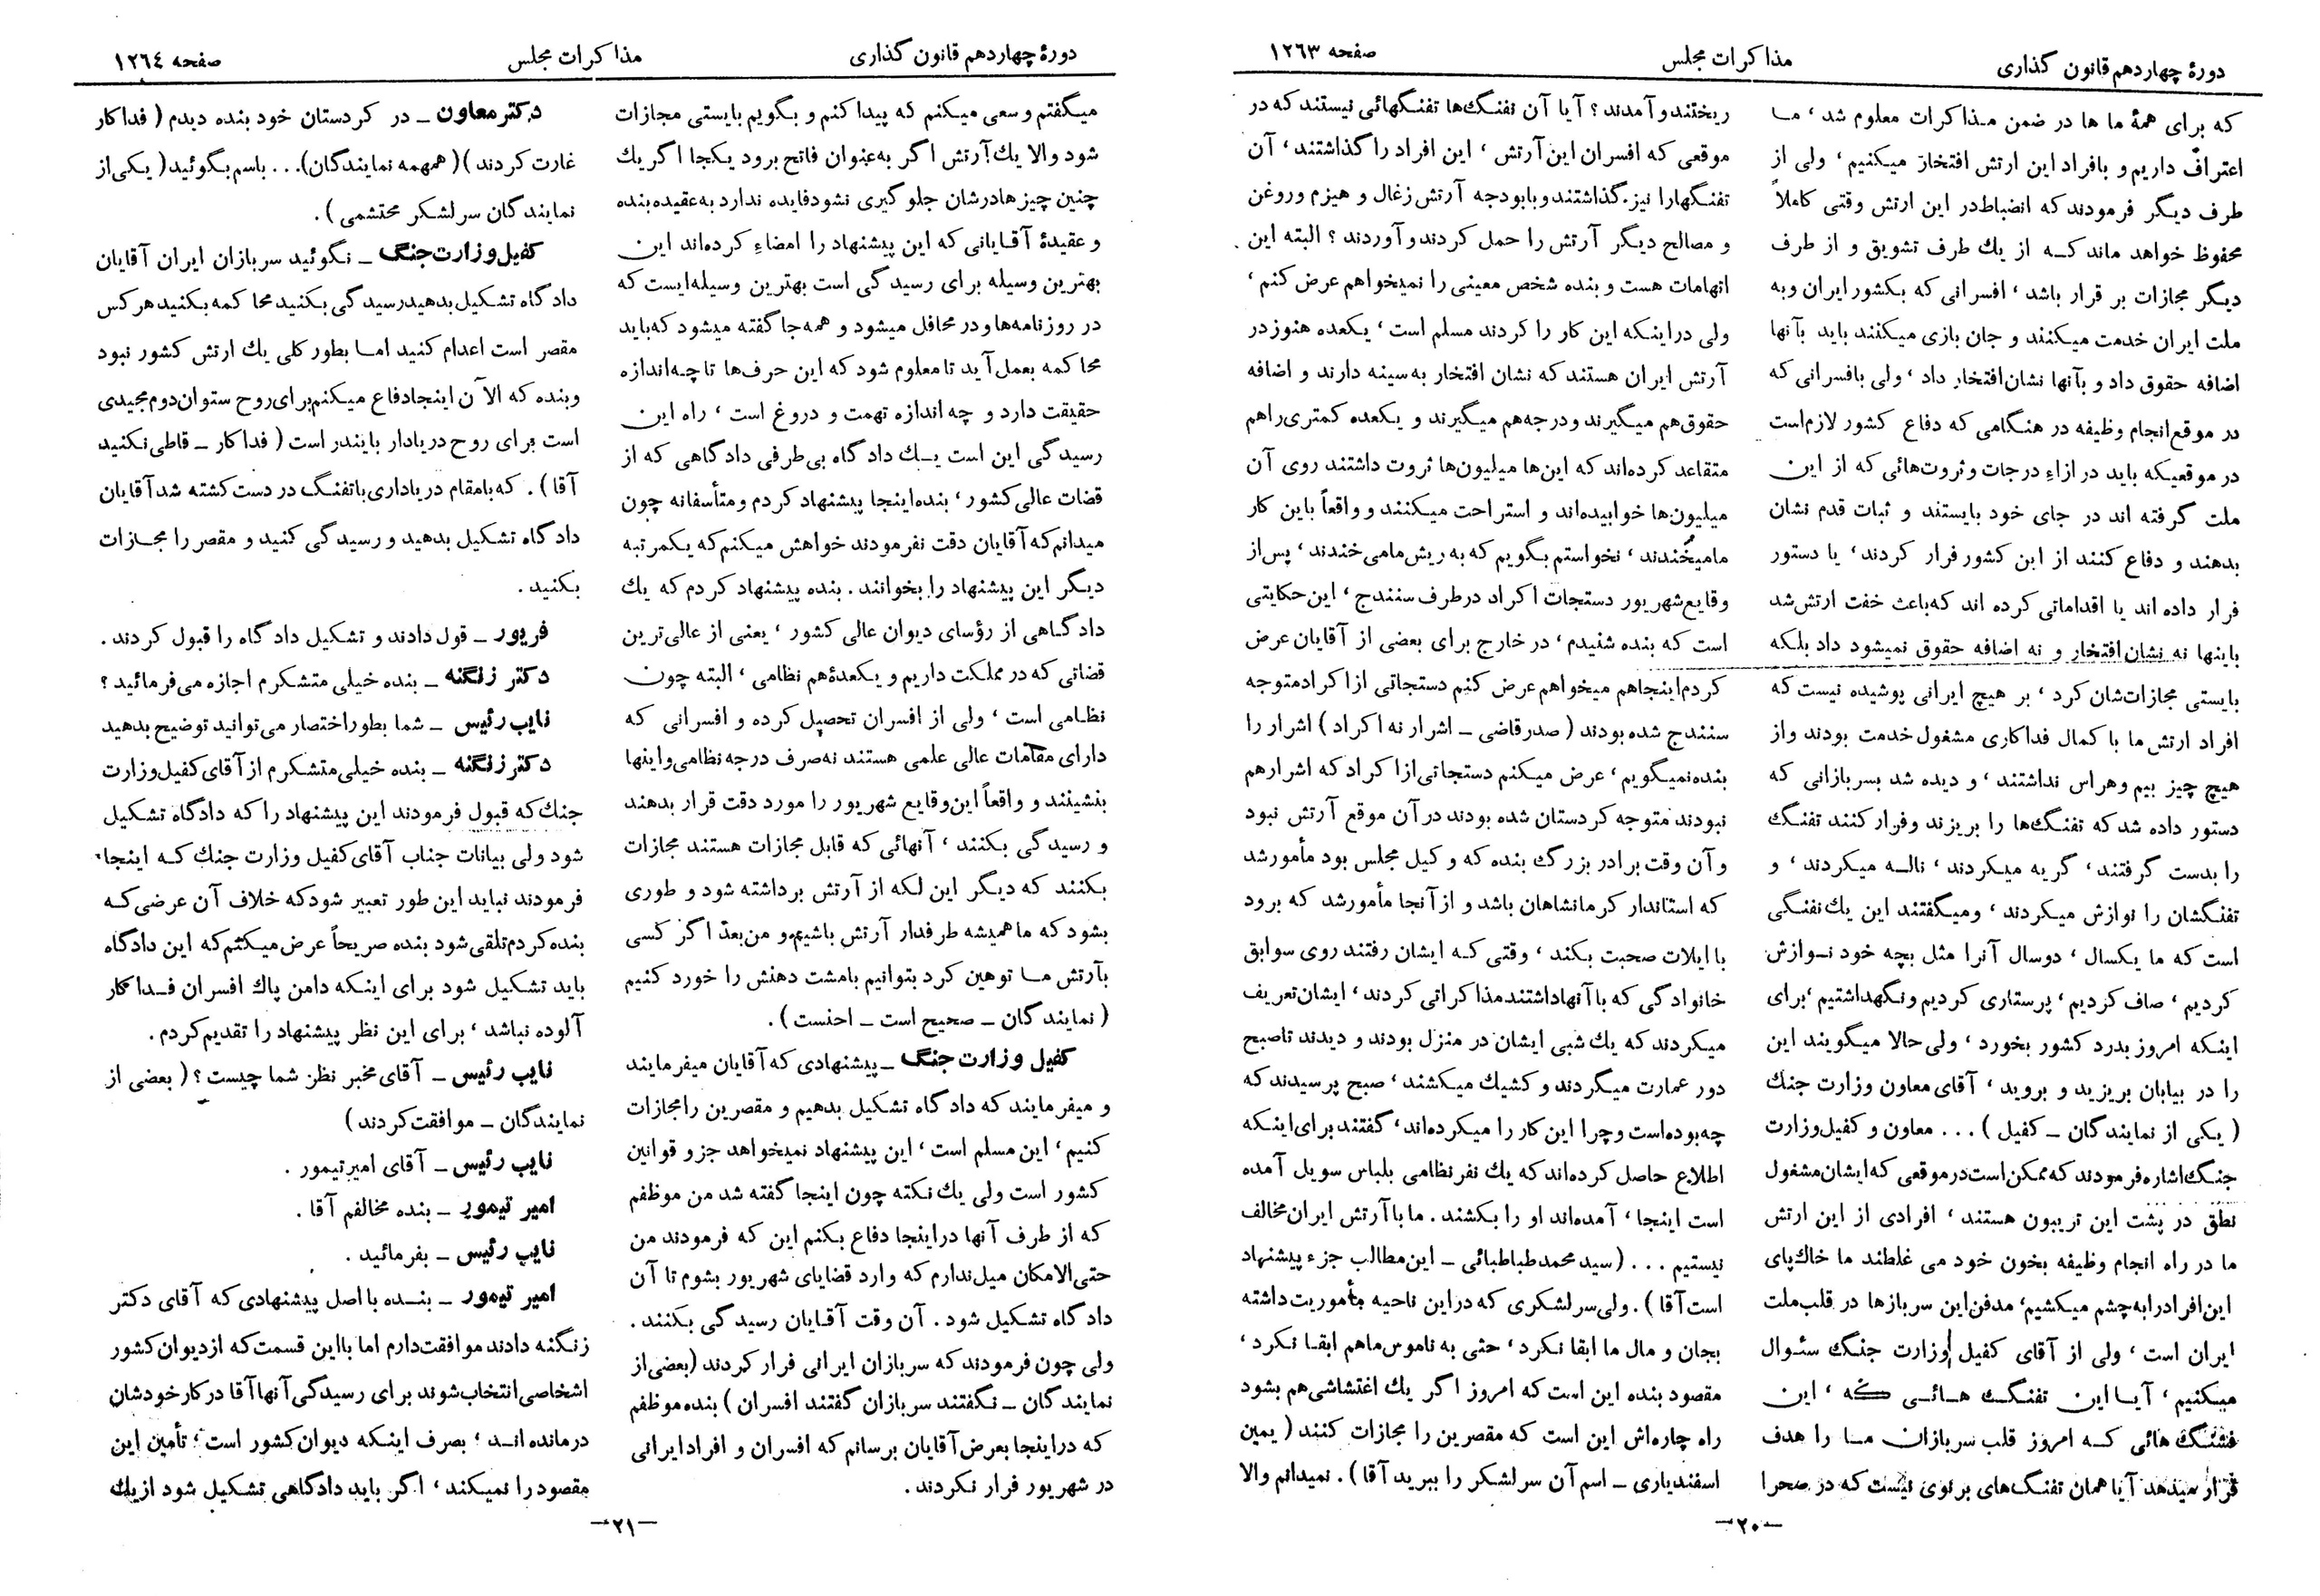 دورهٔ چهاردهم قانون گذاری
مذاکرات مجلس
صفحه ۱۲۶۳
که برای همهٔ ما ها در ضمن مذاکرات معلوم شد ، ما
اعتراف داریم و بافراد این ارتش افتخار میکنیم ، ولی از
طرف دیگر فرمودند که انضباط در این ارتش وقتی کاملاً
محفوظ خواهد ماند که از یك طرف تشویق و از طرف
دیگر مجازات بر قرار باشد ، افسرانی که بکشور ایران و به
ملت ایران خدمت میکنند و جان بازی میکنند باید بآنها
اضافه حقوق داد و بآنها نشان افتخار داد ، ولی بافسرانی که
در موقع انجام وظیفه در هنگامی که دفاع کشور لازم است
در موقعیکه باید در ازاء درجات و ثروت‌هائی که از این
ملت گرفته اند در جای خود بایستند و ثبات قدم نشان
بدهند و دفاع کنند از این کشور فرار کردند ، یا دستور
فرار داده اند یا اقداماتی کرده اند که باعث خفت ارتش شد
باینها نه نشان افتخار و نه اضافه حقوق نمیشود داد بلکه
بایستی مجازات‌شان کرد ، بر هیچ ایرانی پوشیده نیست که
افراد ارتش ما با کمال فداکاری مشغول خدمت بودند و از
هیچ چیز بیم و هراس نداشتند ، و دیده شد بسربازانی که
دستور داده شد که تفنگ‌ها را بریزند و فرار کنند تفنگ
را بدست گرفتند ، گریه میکردند ، ناله میکردند ، و
تفنگشان را نوازش میکردند ، و میگفتند این یك تفنگی
است که ما یکسال ، دوسال آنرا مثل بچه خود نوازش
کردیم ، صاف کردیم ، پرستاری کردیم و نگهداشتیم ، برای
اینکه امروز بدرد کشور بخورد ، ولی حالا میگویند این
را در بیابان بریزید و بروید ، آقای معاون وزارت جنك
( یکی از نمایندگان ــ کفیل ) ... معاون و کفیل وزارت
جنگ اشاره فرمودند که ممکن است در موقعی که ایشان مشغول
نطق در پشت این تریبون هستند ، افرادی از این ارتش
ما در راه انجام وظیفه بخون خود می غلطند ما خاك پای
این افراد را به چشم میکشیم ، مدفن این سربازها در قلب ملت
ایران است ، ولی از آقای کفیل وزارت جنگ سئوال
میکنیم ، آیا این تفنگ هائی که ، این
فشنگ هائی که امروز قلب سربازان ما را هدف
قرار میدهد آیا همان تفنگ‌های برنوی نیست که در صحرا
ریختند و آمدند ؟ آیا آن تفنگ‌ها تفنگهائی نیستند که در
موقعی که افسران این آرتش ، این افراد را گذاشتند ، آن
تفنگهارا نیز گذاشتند و با بودجه آرتش زغال و هیزم و روغن
و مصالح دیگر آرتش را حمل کردند و آوردند ؟ البته این
اتهامات هست و بنده شخص معینی را نمیخواهم عرض کنم ،
ولی در اینکه این کار را کردند مسلم است ، یکعده هنوز در
آرتش ایران هستند که نشان افتخار به سینه دارند و اضافه
حقوق هم میگیرند و درجه هم میگیرند و یکعده کمتری را هم
متقاعد کرده‌اند که این‌ها میلیون‌ها ثروت داشتند روی آن
میلیون‌ها خوابیده‌اند و استراحت میکنند و واقعاً باین کار
ما میخندند ، نخواستم بگویم که به ریش ما می خندند ، پس از
وقایع شهریور دستجات اکراد در طرف سنندج ، این حکایتی
است که بنده شنیدم ، در خارج برای بعضی از آقایان عرض
کردم اینجا هم میخواهم عرض کنم دستجاتی از اکراد متوجه
سنندج شده بودند ( صدر قاضی ــ اشرار نه اکراد ) اشرار را
بنده نمیگویم ، عرض میکنم دستجاتی از اکراد که اشرار هم
نبودند متوجه کردستان شده بودند در آن موقع آرتش نبود
و آن وقت برادر بزرگ بنده که وکیل مجلس بود مأمور شد
که استاندار کرمانشاهان باشد و از آنجا مأمور شد که برود
با ایلات صحبت بکند ، وقتی که ایشان رفتند روی سوابق
خانوادگی که با آنها داشتند مذاکراتی کردند ، ایشان تعریف
میکردند که یك شبی ایشان در منزل بودند و دیدند تا صبح
دور عمارت میگردند و کشیك میکشند ، صبح پرسیدند که
چه بوده است و چرا این کار را میکرده‌اند ، گفتند برای اینکه
اطلاع حاصل کرده‌اند که یك نفر نظامی بلباس سویل آمده
است اینجا ، آمده‌اند او را بکشند . ما با آرتش ایران مخالف
نیستیم ... ( سید محمد طباطبائی ــ این مطالب جزء پیشنهاد
است آقا ) . ولی سر لشکری که در این ناحیه مأموریت داشته
بجان و مال ما ابقا نکرد ، حتی به ناموس ما هم ابقا نکرد ،
مقصود بنده این است که امروز اگر یك اغتشاشی هم بشود
راه چاره‌اش این است که مقصرین را مجازات کنند ( یمین
اسفندیاری ــ اسم آن سرلشکر را ببرید آقا ) . نمیدانم والا
ــ ۲۰ ــ
دورهٔ چهاردهم قانون گذاری
مذاکرات مجلس
صفحه ۱۲۶۴
میگفتم و سعی میکنم که پیدا کنم و بگویم بایستی مجازات
شود والا یك آرتش اگر به عنوان فاتح برود یکجا اگر یك
چنین چیزها درشان جلوگیری نشود فایده ندارد به عقیده بنده
و عقیدهٔ آقایانی که این پیشنهاد را امضاء کرده‌اند این
بهترین وسیله برای رسیدگی است بهترین وسیله ایست که
در روزنامه‌ها و در محافل میشود و همه جا گفته میشود که باید
محاکمه بعمل آید تا معلوم شود که این حرف‌ها تا چه اندازه
حقیقت دارد و چه اندازه تهمت و دروغ است ، راه این
رسیدگی این است یك دادگاه بی طرفی دادگاهی که از
قضات عالی کشور ، بنده اینجا پیشنهاد کردم و متأسفانه چون
میدانم که آقایان دقت نفرمودند خواهش میکنم که یکمرتبه
دیگر این پیشنهاد را بخوانند . بنده پیشنهاد کردم که یك
دادگاهی از رؤسای دیوان عالی کشور ، یعنی از عالی ترین
قضاتی که در مملکت داریم و یکعدهٔ هم نظامی ، البته چون
نظامی است ، ولی از افسران تحصیل کرده و افسرانی که
دارای مقامات عالی علمی هستند نه صرف درجه نظامی و اینها
بنشینند و واقعاً این وقایع شهریور را مورد دقت قرار بدهند
و رسیدگی بکنند ، آنهائی که قابل مجازات هستند مجازات
بکنند که دیگر این لکه از آرتش برداشته شود و طوری
بشود که ما همیشه طرفدار آرتش باشیم و من بعد اگر کسی
بآرتش ما توهین کرد بتوانیم با مشت دهنش را خورد کنیم
( نمایندگان ــ صحیح است ــ احنست ) .
کفیل وزارت جنگ ــ پیشنهادی که آقایان میفرمایند
و میفرمایند که دادگاه تشکیل بدهیم و مقصرین را مجازات
کنیم ، این مسلم است ، این پیشنهاد نمیخواهد جزو قوانین
کشور است ولی یك نکته چون اینجا گفته شد من موظفم
که از طرف آنها در اینجا دفاع بکنم این که فرمودند من
حتی الامکان میل ندارم که وارد قضایای شهریور بشوم تا آن
دادگاه تشکیل شود . آن وقت آقایان رسیدگی بکنند .
ولی چون فرمودند که سربازان ایرانی فرار کردند ( بعضی از
نمایندگان ــ نگفتند سربازان گفتند افسران ) بنده موظفم
که در اینجا بعرض آقایان برسانم که افسران و افراد ایرانی
در شهریور فرار نکردند .
دکتر معاون ــ در کردستان خود بنده دیدم ( فداکار
غارت کردند ) ( همهمه نمایندگان ) ... باسم بگوئید ( یکی از
نمایندگان سرلشکر محتشمی ) .
کفیل وزارت جنگ ــ نگوئید سربازان ایران آقایان
دادگاه تشکیل بدهید رسیدگی بکنید محاکمه بکنید هر کس
مقصر است اعدام کنید اما بطور کلی یك ارتش کشور نبود
و بنده که الآن اینجا دفاع میکنم برای روح ستوان دوم مجیدی
است برای روح دریادار بایندر است ( فداکار ــ قاطی نکنید
آقا ) . که با مقام دریاداری با تفنگ در دست کشته شد آقایان
دادگاه تشکیل بدهید و رسیدگی کنید و مقصر را مجازات
بکنید .
فریور ــ قول دادند و تشکیل دادگاه را قبول کردند .
دکتر زنگنه ــ بنده خیلی متشکرم اجازه می فرمائید ؟
نایب رئیس ــ شما بطور اختصار می توانید توضیح بدهید
دکتر زنگنه ــ بنده خیلی متشکرم از آقای کفیل وزارت
جنك که قبول فرمودند این پیشنهاد را که دادگاه تشکیل
شود ولی بیانات جناب آقای کفیل وزارت جنك که اینجا
فرمودند نباید این طور تعبیر شود که خلاف آن عرضی که
بنده کردم تلقی شود بنده صریحاً عرض میکنم که این دادگاه
باید تشکیل شود برای اینکه دامن پاك افسران فداکار
آلوده نباشد ، برای این نظر پیشنهاد را تقدیم کردم .
نایب رئیس ــ آقای مخبر نظر شما چیست ؟ ( بعضی از
نمایندگان ــ موافقت کردند )
نایب رئیس ــ آقای امیر تیمور .
امیر تیمور ــ بنده مخالفم آقا .
نایب رئیس ــ بفرمائید .
امیر تیمور ــ بنده با اصل پیشنهادی که آقای دکتر
زنگنه دادند موافقت دارم اما با این قسمت که از دیوان کشور
اشخاصی انتخاب شوند برای رسیدگی آنها آقا در کار خودشان
درمانده اند ؛ بصرف اینکه دیوان کشور است ؛ تأمین این
مقصود را نمیکند ، اگر باید دادگاهی تشکیل شود از یك
ــ ۲۱ ــ